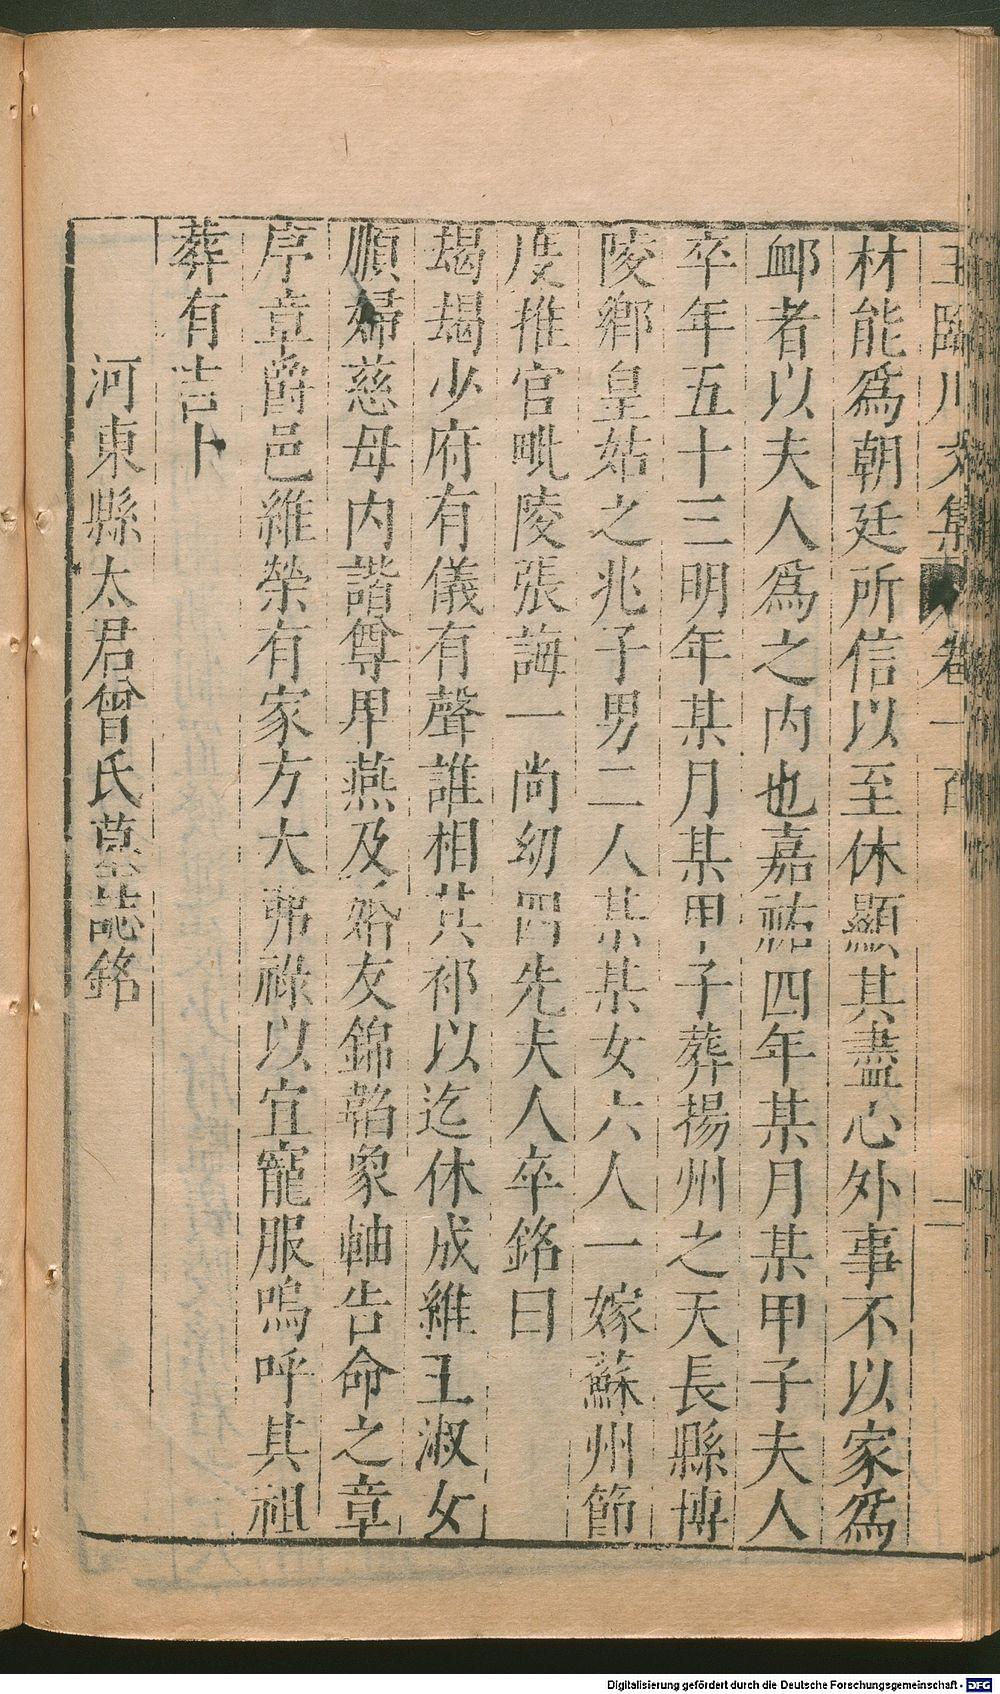 王臨川文集 卷一百 二
材能爲朝廷所信以至休顯其盡心外事不以家爲
䘏者以夫人爲之内也嘉祐四年某月某甲子夫人
卒年五十三明年某月某甲子葬揚州之天長縣博
陵鄉皇姑之兆子男二人某某女六人一嫁蘇州節
度推官毗陵張誨一尚幼四先夫人卒銘曰
朅朅少府有儀有聲誰相其祁以迄休成維王淑女
順婦慈母内諧尊𤰞燕及婚友錦韜象軸告命之章
序章爵邑維榮有家方大弗祿以宜寵服嗚呼其祖
葬有吉卜
河東縣太君曾氏墓誌銘
Digitalisierung gefördert durch die Deutsche Forschungsgemeinschaft - DFG